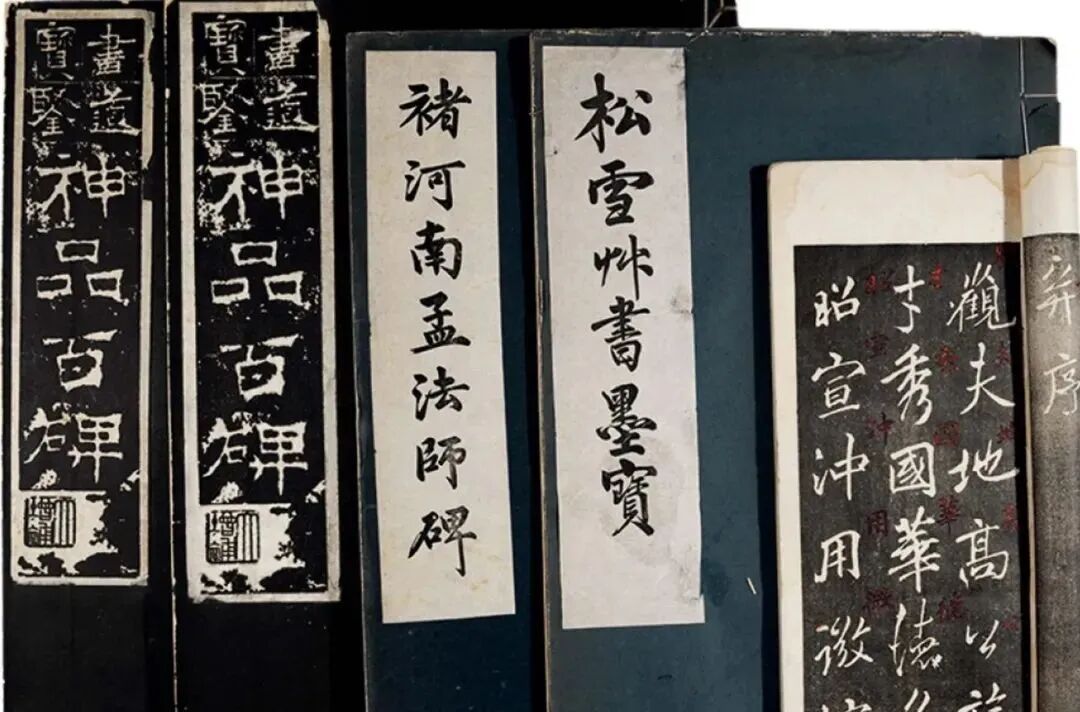 并序
觀夫地高公族
才秀國華德
昭宣沖用微
松雪艸書墨寶
褚河南孟法師碑
書道
寶鑒
神品百碑
書道
寶鑒
神品百碑